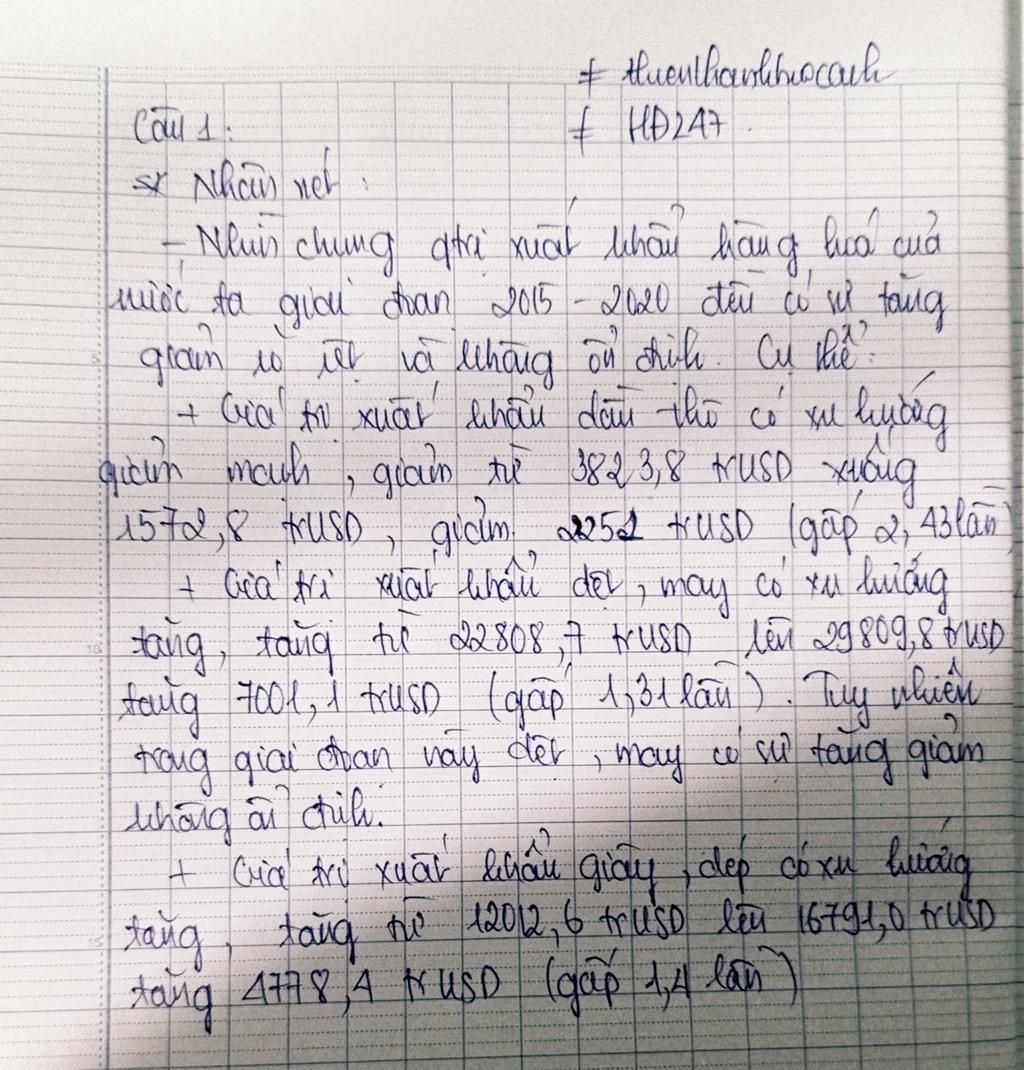 # thuenthanhhuocanh
# HĐ247
Câu 1:
* Nhận xét:
- Nhìn chung gtrị xuất khẩu hàng hoá của
nước ta giai đoạn 2015 - 2020 đều có sự tăng
giảm rõ rệt và không ổn định. Cụ thể:
+ Giá trị xuất khẩu dầu thô có xu hướng
giảm mạnh, giảm từ 3823,8 trUSD xuống
1572,8 trUSD, giảm 2251 trUSD (gấp 2,43 lần)
+ Giá trị xuất khẩu dệt, may có xu hướng
tăng, tăng từ 22808,7 trUSD lên 29809,8 trUSD
tăng 7001,1 trUSD (gấp 1,31 lần). Tuy nhiên
trong giai đoạn này dệt, may có sự tăng giảm
không ổn định.
+ Giá trị xuất khẩu giày, dép có xu hướng
tăng, tăng từ 12012,6 trUSD lên 16791,0 trUSD
tăng 4778,4 trUSD (gấp 1,4 lần)